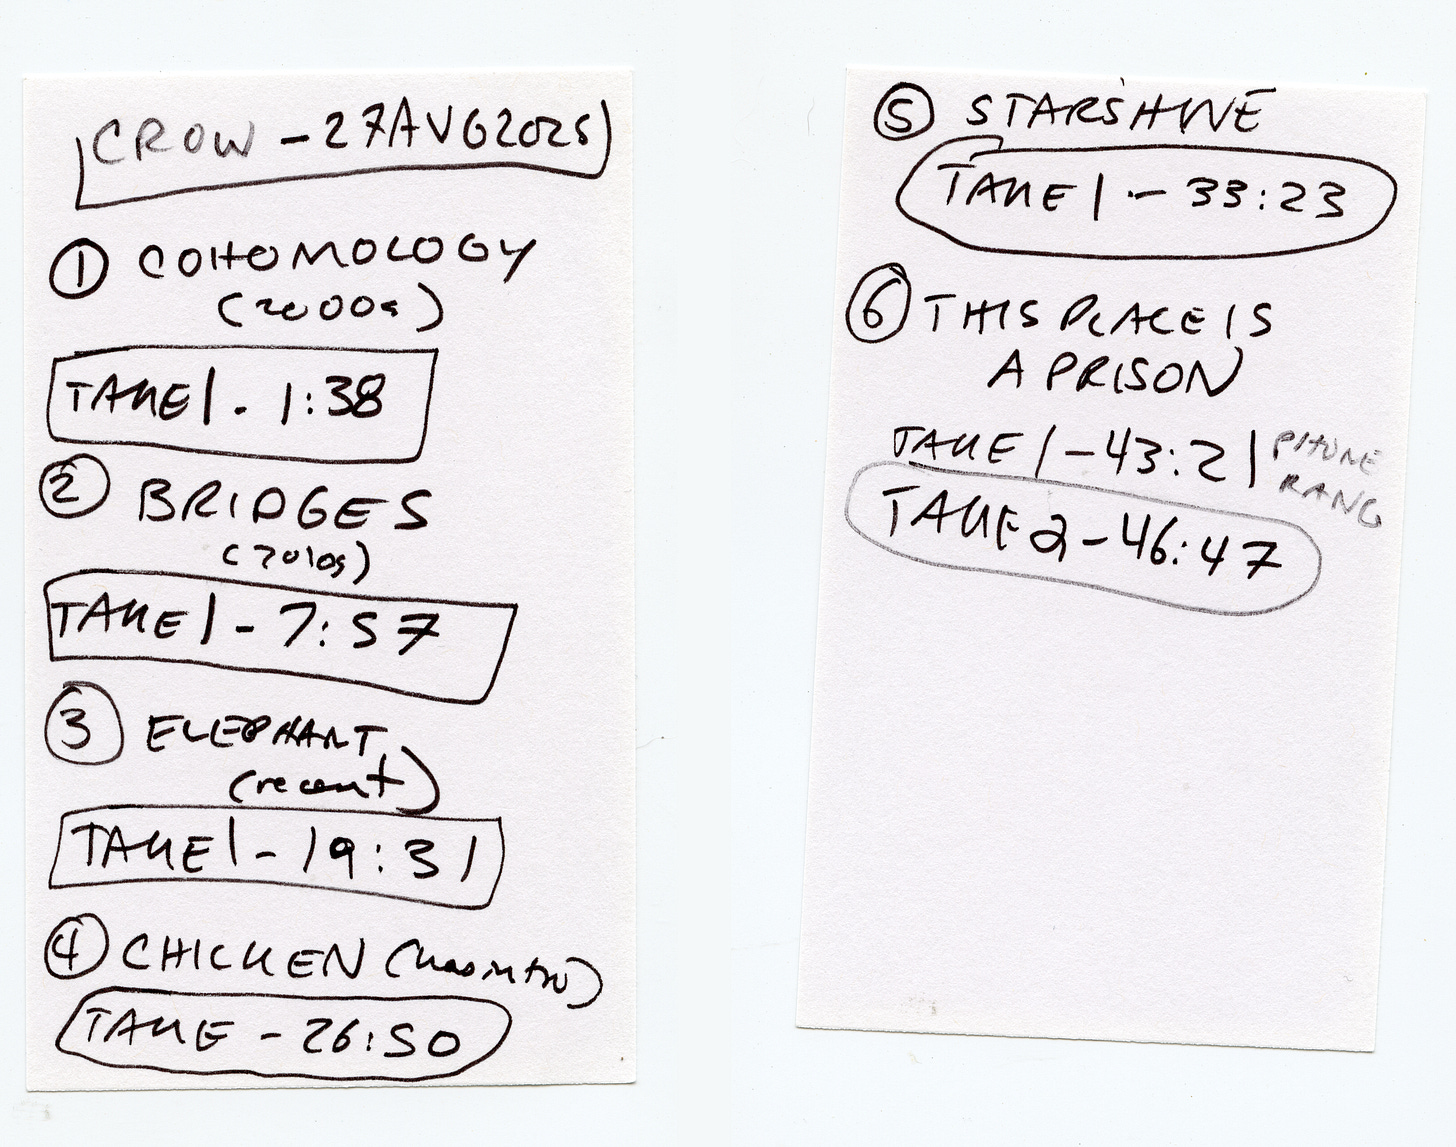 CROW - 27AUG2025
① COHOMOLOGY
(2000s)
TAKE 1 - 1:38
② BRIDGES
(2010s)
TAKE 1 - 7:57
③ ELEPHANT
(recent)
TAKE 1 - 19:31
④ CHICKEN (has intro)
TAKE - 26:50
⑤ STARSHINE
TAKE 1 - 33:23
⑥ THIS PLACE IS
A PRISON
TAKE 1 - 43:21 PHONE RANG
TAKE 2 - 46:47